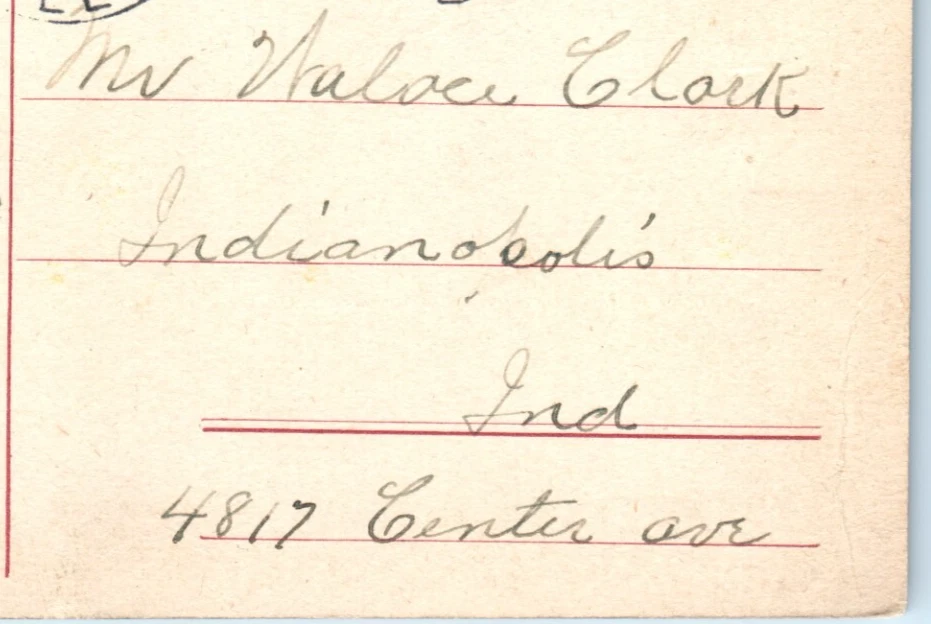 Mr Walace Clark
Indianopolis
Ind
4817 Center ave